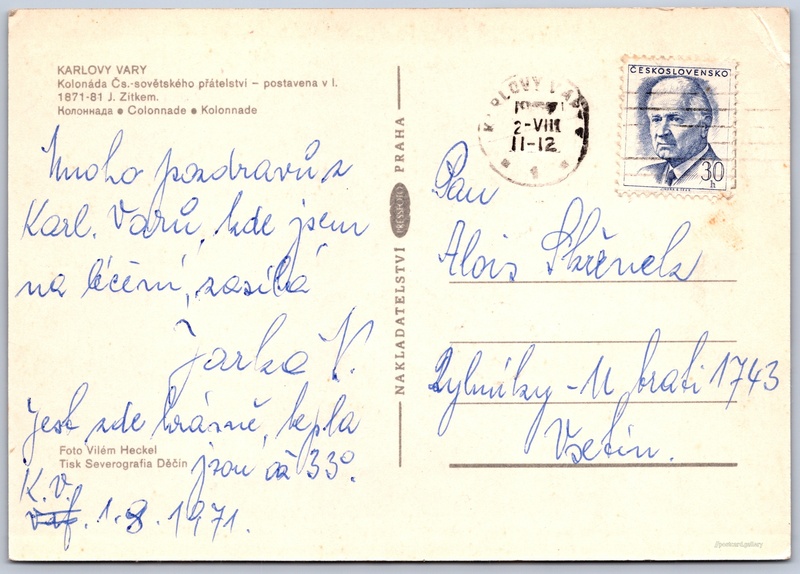 KARLOVY VARY
Kolonáda Čs.-sovětského přátelství – postavena v l.
1871-81 J. Zítkem.
Колоннада ● Colonnade ● Kolonnade
Mnoho pozdravů z
Karl. Varů, kde jsem
na léčení, zasílá
Jarka V.
Jest zde krásně, tepla
jsou až 33°.
Foto Vilém Heckel
Tisk Severografia Děčín
K. V.
1. 8. 1971.
NAKLADATELSTVÍ PRESSFOTO PRAHA
KARLOVY VARY
2-VIII
11-12
1
ČESKOSLOVENSKO
30
h
Pan
Alois Skřenek
Rybníky - U trati 1743
Vsetín.
postcard.gallery